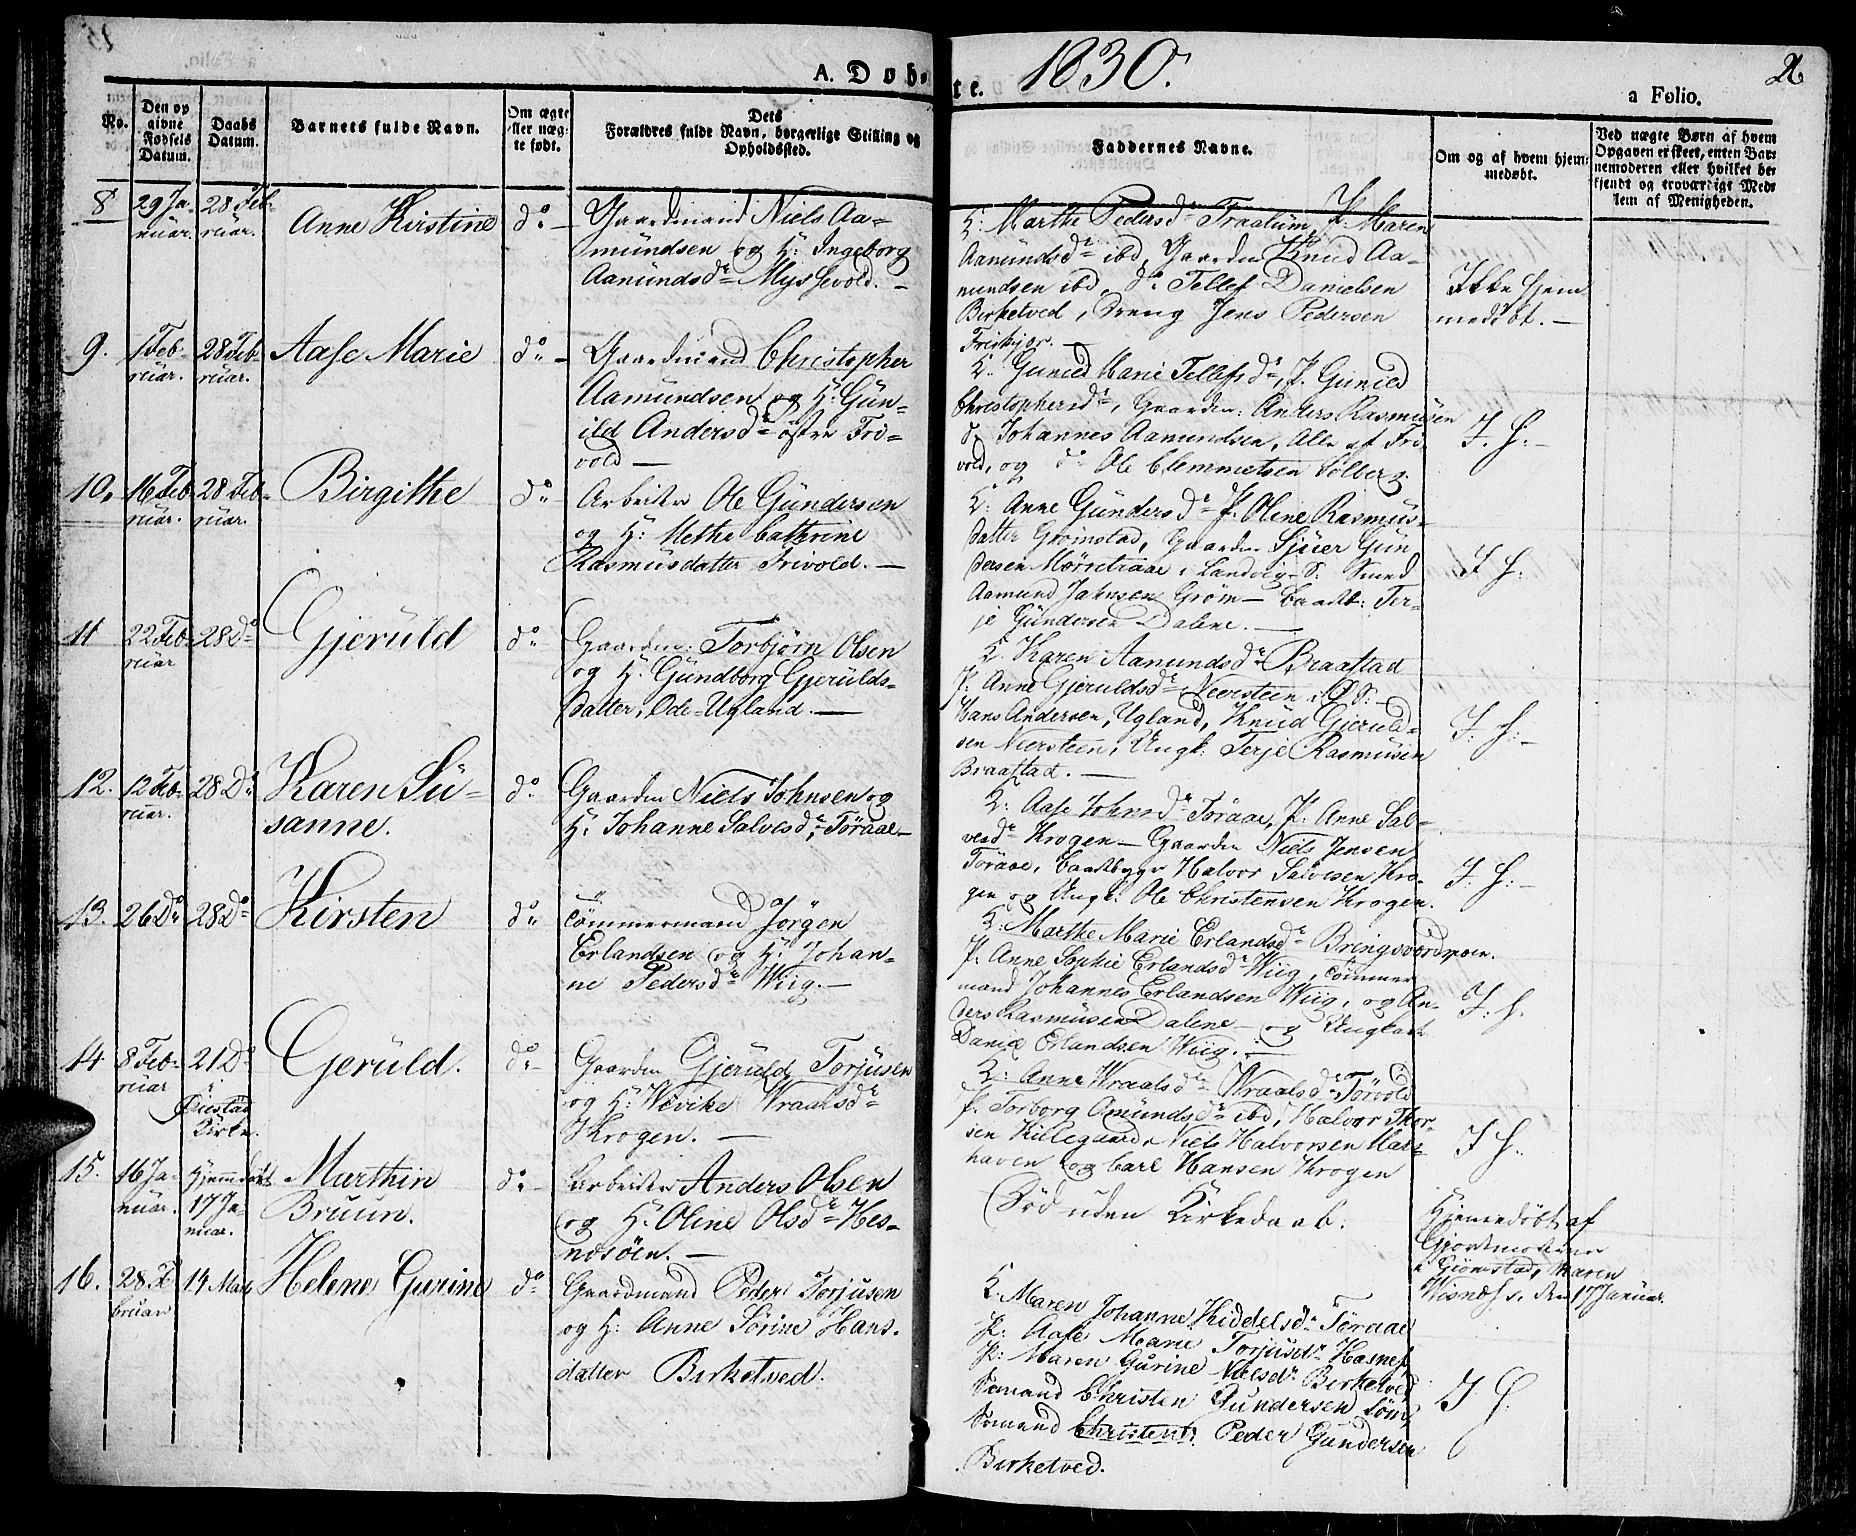 A. Døb-
te. 1830.
a Folio.
No.
Den op
givne
Fødsels
Datum.
Daabs
Datum.
Barnets fulde Navn.
Om ægte
eller uæg-
te født.
Dets
Forældres fulde Navn, borgerlige Stilling og
Opholdssted.
Faddernes Navne.
Om og af hvem hjem-
medøbt.
Ved uægte Børn af hvem
Opgaven er skeet, enten Bar-
nemoderen eller hvilket be-
kjendt og troværdigt Med-
lem af Menigheden.
8
29 Ja-
nuar.
28 Feb-
ruar.
Anne Kirstine
do -
Gaardmand Niels Aa-
mundsen og H: Ingeborg
Aamundsdr Myssevold. -
K: Marthe Pedersdr Traalum, P. Maren
Aamundsdr ibd, Gaardm Knud Aa-
mundsen ibd, do Tellef Danielsen
Birketved, Dreng Jens Pedersen
Friskjær. -
Ikke hjem
medøbt. -
9.
1 Feb-
ruar.
28 Feb
ruar.
Aase Marie
do -
Gaardmand Christopher
Aamundsen og H: Gun-
ild Andersdr østre Fri-
vold -
K. Gunild Marie Tellefsdr, P. Gunild
Christophersdr, Gaardm: Anders Rasmusen
do Johannes Aamundsen, Alle af Fri-
vold, og do Ole Clemmetsen Solberg.
I. H: -
10.
16 Feb
ruar.
28 Feb-
ruar.
Birgithe
do
Arbeider Ole Gundersen
og H: Methe Cathrine
Rasmusdatter Frivold. -
K: Anne Gundersdr P. Oline Rasmus-
datter Grømstad, Gaardm Sjuer Gun
dersen Mørretraae i Landvig S: Smed
Aamund Jahnsen Grøm - Baadb: Ter-
je Gundersen Dalene. -
I H:
11
22 Feb-
ruar
28 Do
Gjeruld
do
Gaardm: Torbjørn Olsen
og H: Gundborg Gjerulds-
datter, Ode-Ugland. -
K. Karen Aamundsdr Braastad
P. Anne Gjeruldsdr Neersteen, Ø S: -
Hans Andersen, Ugland, Knud Gjeruld-
sen Neersteen, Ungk: Terje Rasmusen
Braastad. -
I: H: -
12.
12 Feb-
ruar.
28 Do
Karen Su-
sanne.
do
Gaardm Niels Johnsen og
H: Johanne Salvesdr, Toraae -
K: Aase Johnsdr Toraae, P. Anne Sal-
vesdr Krogen - Gaardm Niels Jensen
Toraae, Baadbygr Halvor Salvesen Kro-
gen og Ungk: Ole Christensen Krogen.
I: H: -
13.
26 Do
28 Do
Kirsten
do
Tømmermand Jørgen
Erlandsen og H: Johan-
ne Pedersdr Wiig. -
K: Marthe Marie Erlandsdr Bringsværdmoen.
P. Anne Sophie Erlandsdr Wiig, Tømmer
mand Johannes Erlandsen Wiig, og An-
ders Rasmusen Dalene - og Ungkarl
Daniel Erlandsen Wiig. -
I: H.
14
8 Feb-
ruar
21 Do
i
Fiestad
Kirke.
Gjeruld.
do -
Gaardm Gjeruld Torjusen
og H: Wevike Wraalsdr
Krogen. -
K: Anne Wraalsdr Wraalsdr Torvold
P. Torborg Amundsdr ibd, Halvor Thor-
sen Killegaard, Niels Halvorsen Mars-
haven og Carl Hansen Krogen
I H.
15.
16 Ja-
nuar.
Hjemdøbt
17 Ja-
nuar.
Marthin
Bruun.
do -
Arbeider Anders Olsen
og H: Oline Olsdr Hes-
nesøen. -
Død uden Kirkedaab.
Hjemedøbt af
Gjordmoderen
i Grømstad, Maren
Wisnæs, den 17 Januar.
16.
28. Fe-
bruar
14 Marts
Helene Gurine
do
Gaardmand Peder Torjusen
og H: Anne Sørine Hans-
datter Birketved.
K. Maren Johanne Kiddelsdr Toraae
P: Aase Marie Torjusdr Hasnes
P: Maren Gurine Nielsdr Birketved
Sømand Christen Gundersen Søm,
Sømand Christen Peder Gundersen
Birketved.
I H.